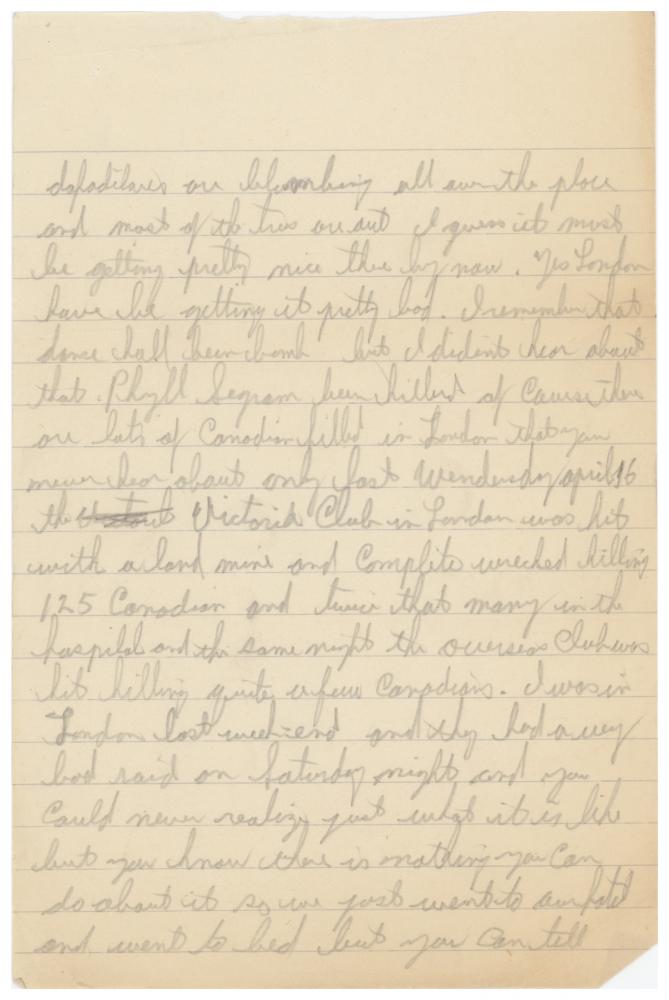 dafadilares are bloombing all over the place
and most of the tres are out I guess it must
be getting pretty nice there by now. Yes London
have be getting it pretty bad. I remember that
dance hall been bomb but I dident hear about
that. Phyll Segram been killed of Caurse there
are lots of Canadian killed in London that you
never hear about only last Wendersday april 16
the Victoria Club in London was hit
with a land mine and Complite wrecked killing
125 Canadian and twice that many in the
haspital and the same night the overseas Club was
hit killing quite a few Canadians. I was in
London last week-end and they had a very
bad raid on Saturday night and you
Could never realize just what it is like
but you know there is nothing you can
do about it so we just went to our hotel
and went to bed but you can tell